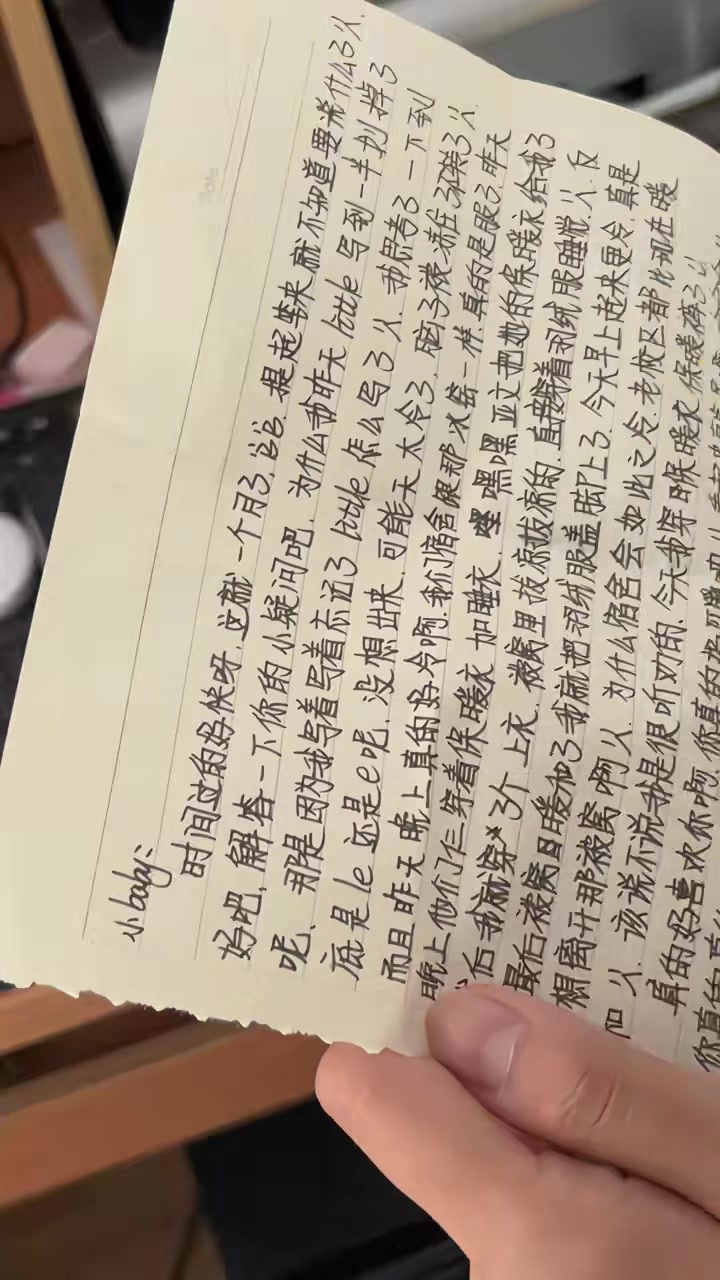 小baby：
时间过的好快呀，这就一个月3，爸爸 提起笔来就不知道要说什么3 乂.
好吧，解答一下你的小疑问吧，为什么我昨天 little 写到一半划掉3
呢、那是因为我写着写着忘记3 little 怎么写3 乂. 我思考3 一下到
底是le 还是e呢，没想出来，可能天太冷3，脑3被冻住3
而且昨天晚上真的好冷啊，我们宿舍跟那冰窖一样，真的是服3，昨天
晚上他们仨穿着保暖衣加睡衣，嘿嘿 亚文把她的保暖衣给我3
后我就穿3个上衣，被窝里拔凉拔凉的，直接穿着羽绒服睡觉 乂. 反
最后被窝日暖和3我就把羽绒服盖脚上3，今天早上起来更冷，真是
想离开那被窝啊 乂. 为什么宿舍会如此之冷，老校区都比现在暖
和 乂. 该说不说我是很听劝的，今天我穿3保暖衣，保暖裤3 乂
真的好喜欢你啊，你真的
你真的